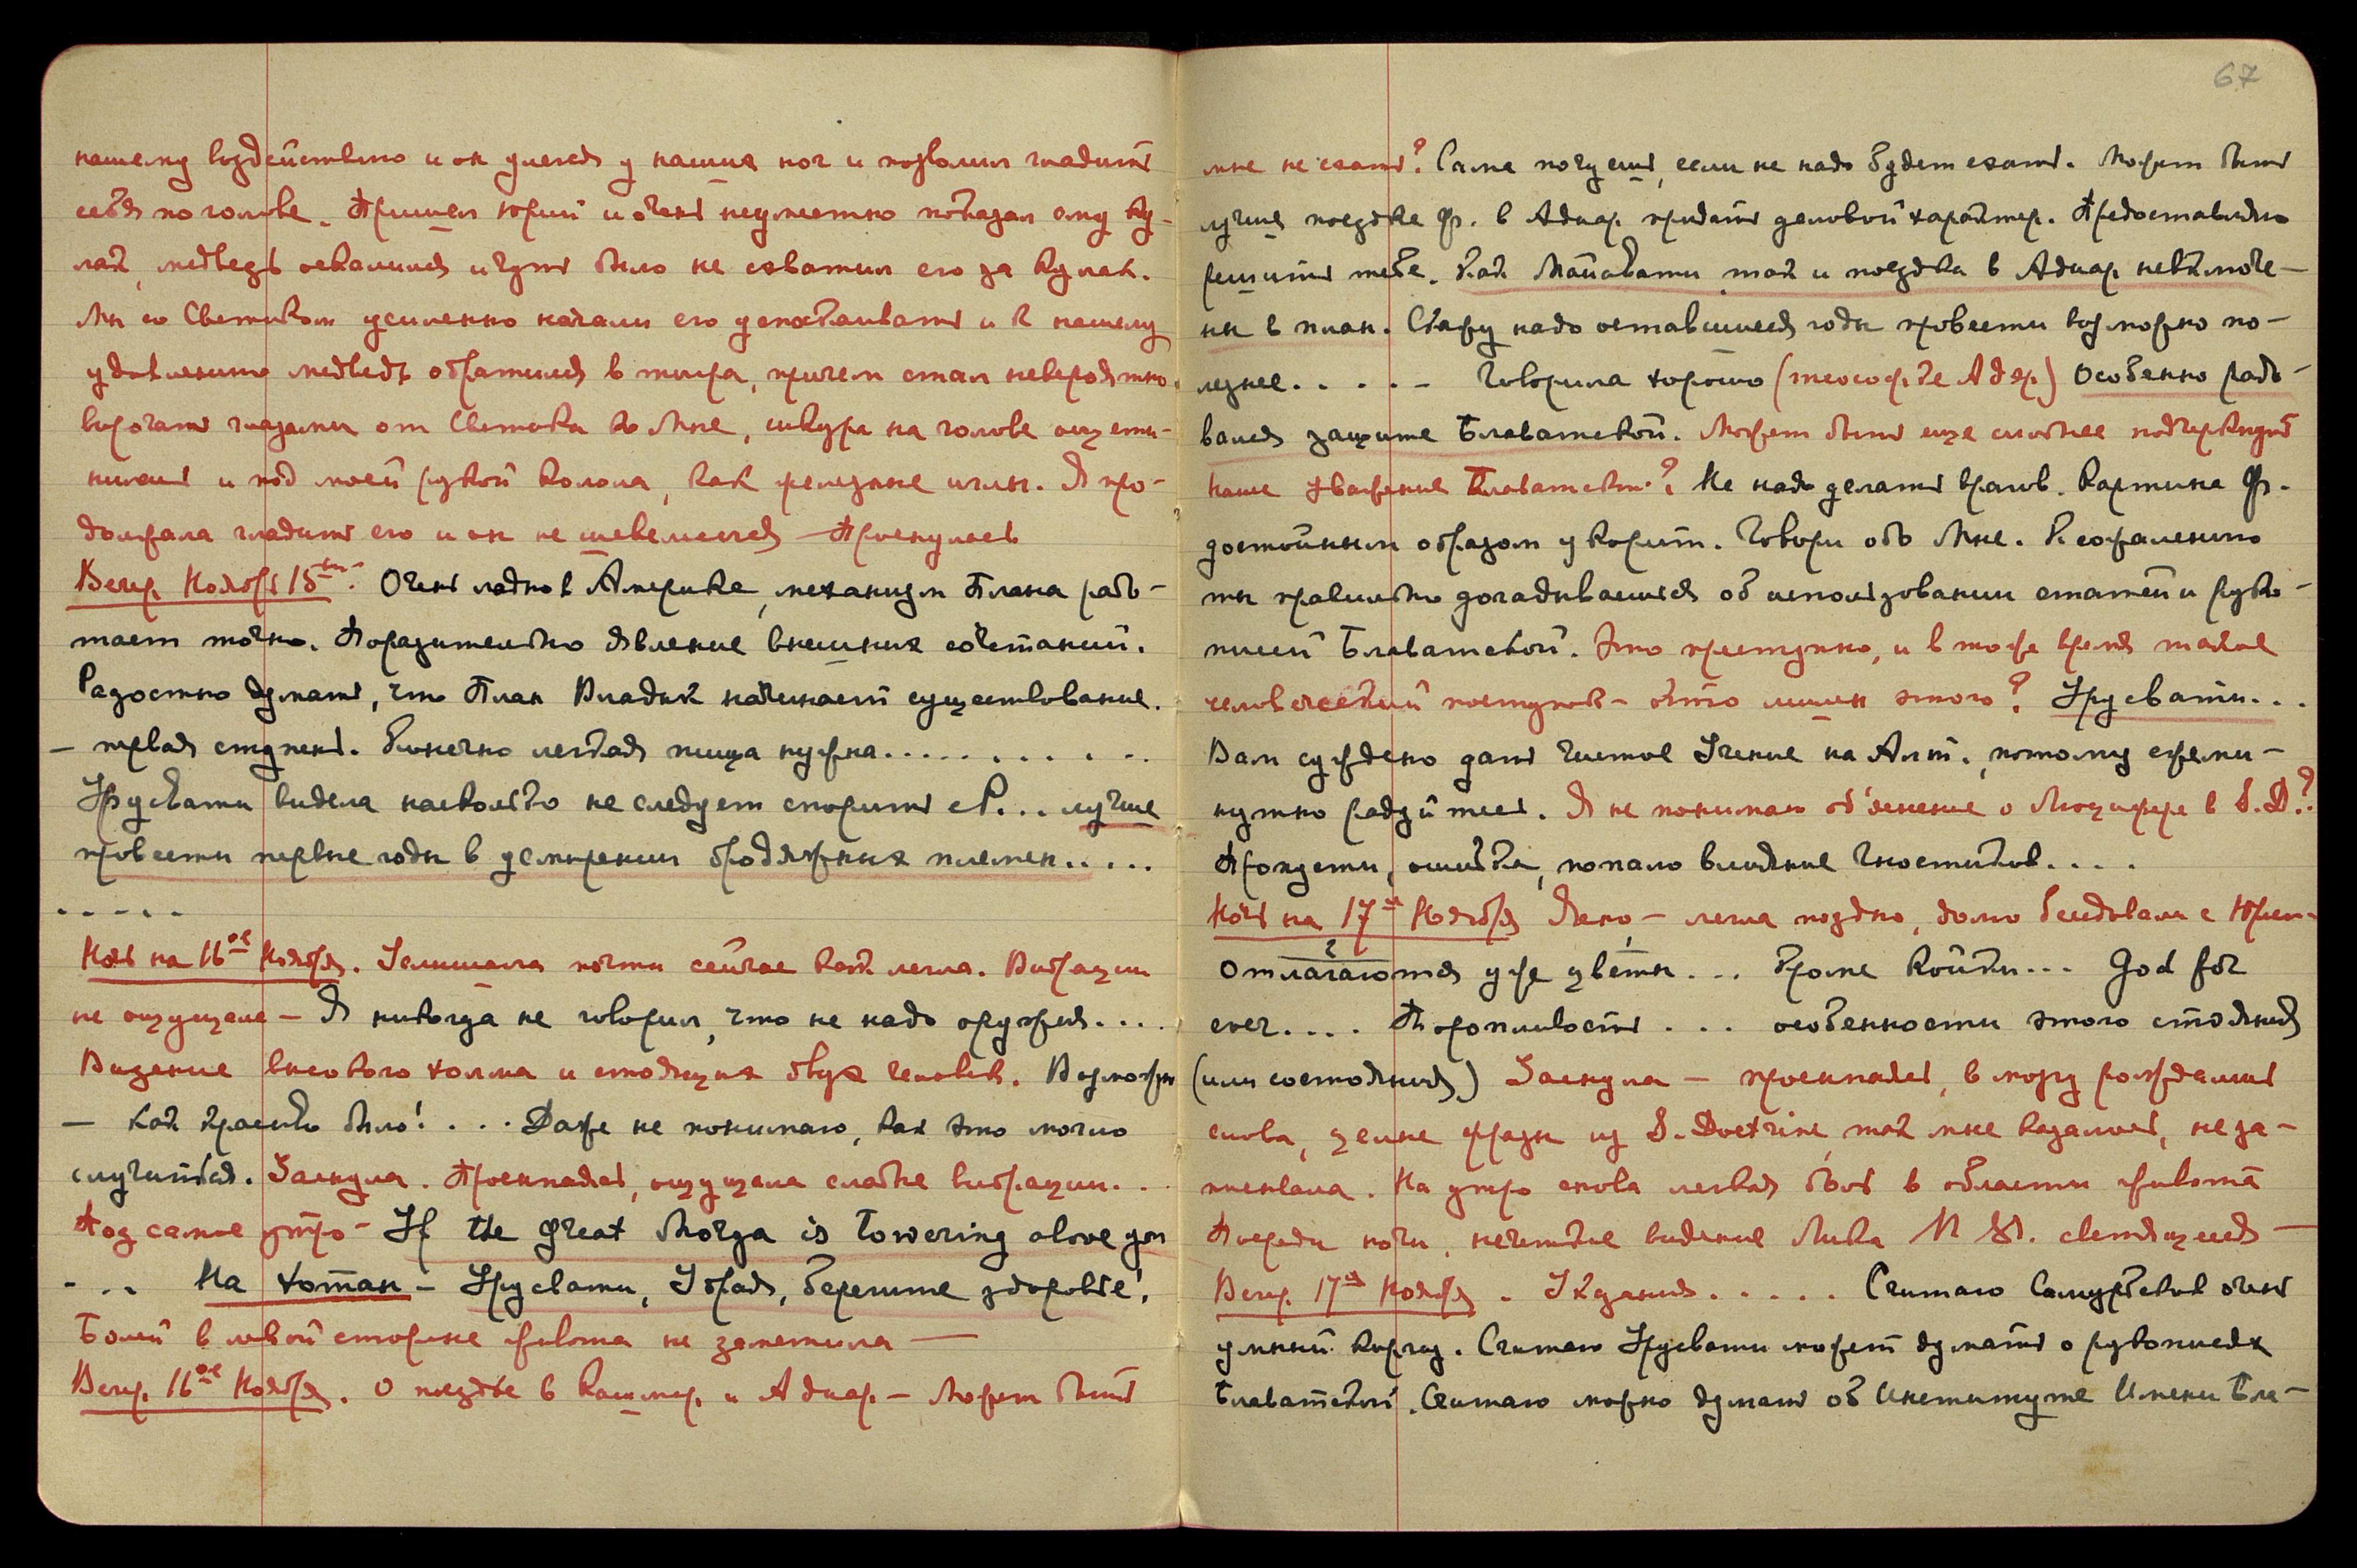 нашему воздействию и он улегся у наших ног и позволил гладить
себя по голове. Пришел Юрий и очень неуместно показал ему ку-
лак, медведь оскалился и чуть было не схватил его за кулак.
Мы со Светиком усиленно начали его успокаивать и к нашему
удивлению медведь обратился в тигра, причем стал невероятно
ворочать глазами от Светика ко Мне, шкура на голове още-
нилась и под моей рукой колола, как железные иглы. Я про-
должала гладить его и он не шевелился — Проснулась
Вечер Ноября 15го. Очень ладно в Америке, механизм Плана рабо-
тает точно. Поразительно явление внешних сочетаний.
Радостно думать, что План Владык начинает существование.
— первая ступень. Конечно легкая пища нужна...........
Урусвати видела насколько не следует спорить с Р... лучше
провести первые годы в усмирении бродяжных племен.....
.....
Ночь на 16ое Ноября. Услышала почти сейчас как легла. Вибрации
не ощущала — Я никогда не говорил, что не надо оружия....
Видение высокого холма и стоящих двух человек. Возможн
— как красиво было! ... Даже не понимаю, как это могло
случиться. Заснула. Просыпаясь, ощущала слабые вибрации...
Под самое утро — If the great Morya is towering above you
... На Хотан — Урусвати, Удрая, берегите здоровье!
Болей в левой стороне живота не заметила —
Вечер 16ое Ноября. О поездке в Кашмир и Адиар — Может быть
67
мне не ехать? Сама почуешь, если не надо будет ехать. Может быть
лучше поездке Ф. в Адиар придать деловой характер. Предоставляю
решить тебе. Как Майавати, так и поездка в Адиар невключе-
ны в план. Стару надо оставшиеся годы провести возможно по-
лезнее..... Говорила хорошо (теософке Адяр) Особенно радо-
вался защите Блаватской. Может быть еще сильнее подчеркнуть
наше уважение Блаватской? Не надо делать врагов. Картина Ф.
достойным образом укорит. Говори обо Мне. К сожалению
ты правильно догадываешься об использовании статей и руко-
писей Блаватской. Это преступно, и в то же время такое
человеческий поступок — кто лишен этого? Урусвати...
Вам суждено дать чистое Учение на Алт., потому ежеми-
нутно радуйтесь. Я не понимаю объяснение о Люцифере в S.D.?
Прочдети, ошибка, попало влияние Гностиков....
Ночь на 17ое Ноября Ясно, — легла поздно, долго беседовали с Юрием
Отлагаются уже цветы... Кроме войны... God for
ever.... Торопливость ... особенности этого стояния
(или состояния) Заснула — просыпаясь, в мозгу рождались
слова, целые фразы из S. Doctrine, так мне казалось, не за-
писывала. На утро снова легкая боль в области живота
Посреди ночи, нечеткое видение Лика М. светящееся —
Вечер 17ое Ноября. Указания..... Считаю Самурский очень
умный киргиз. Считаю Урусвати может думать о рукописях
Блаватской. Считаю можно думать об Институте Имени Бла-